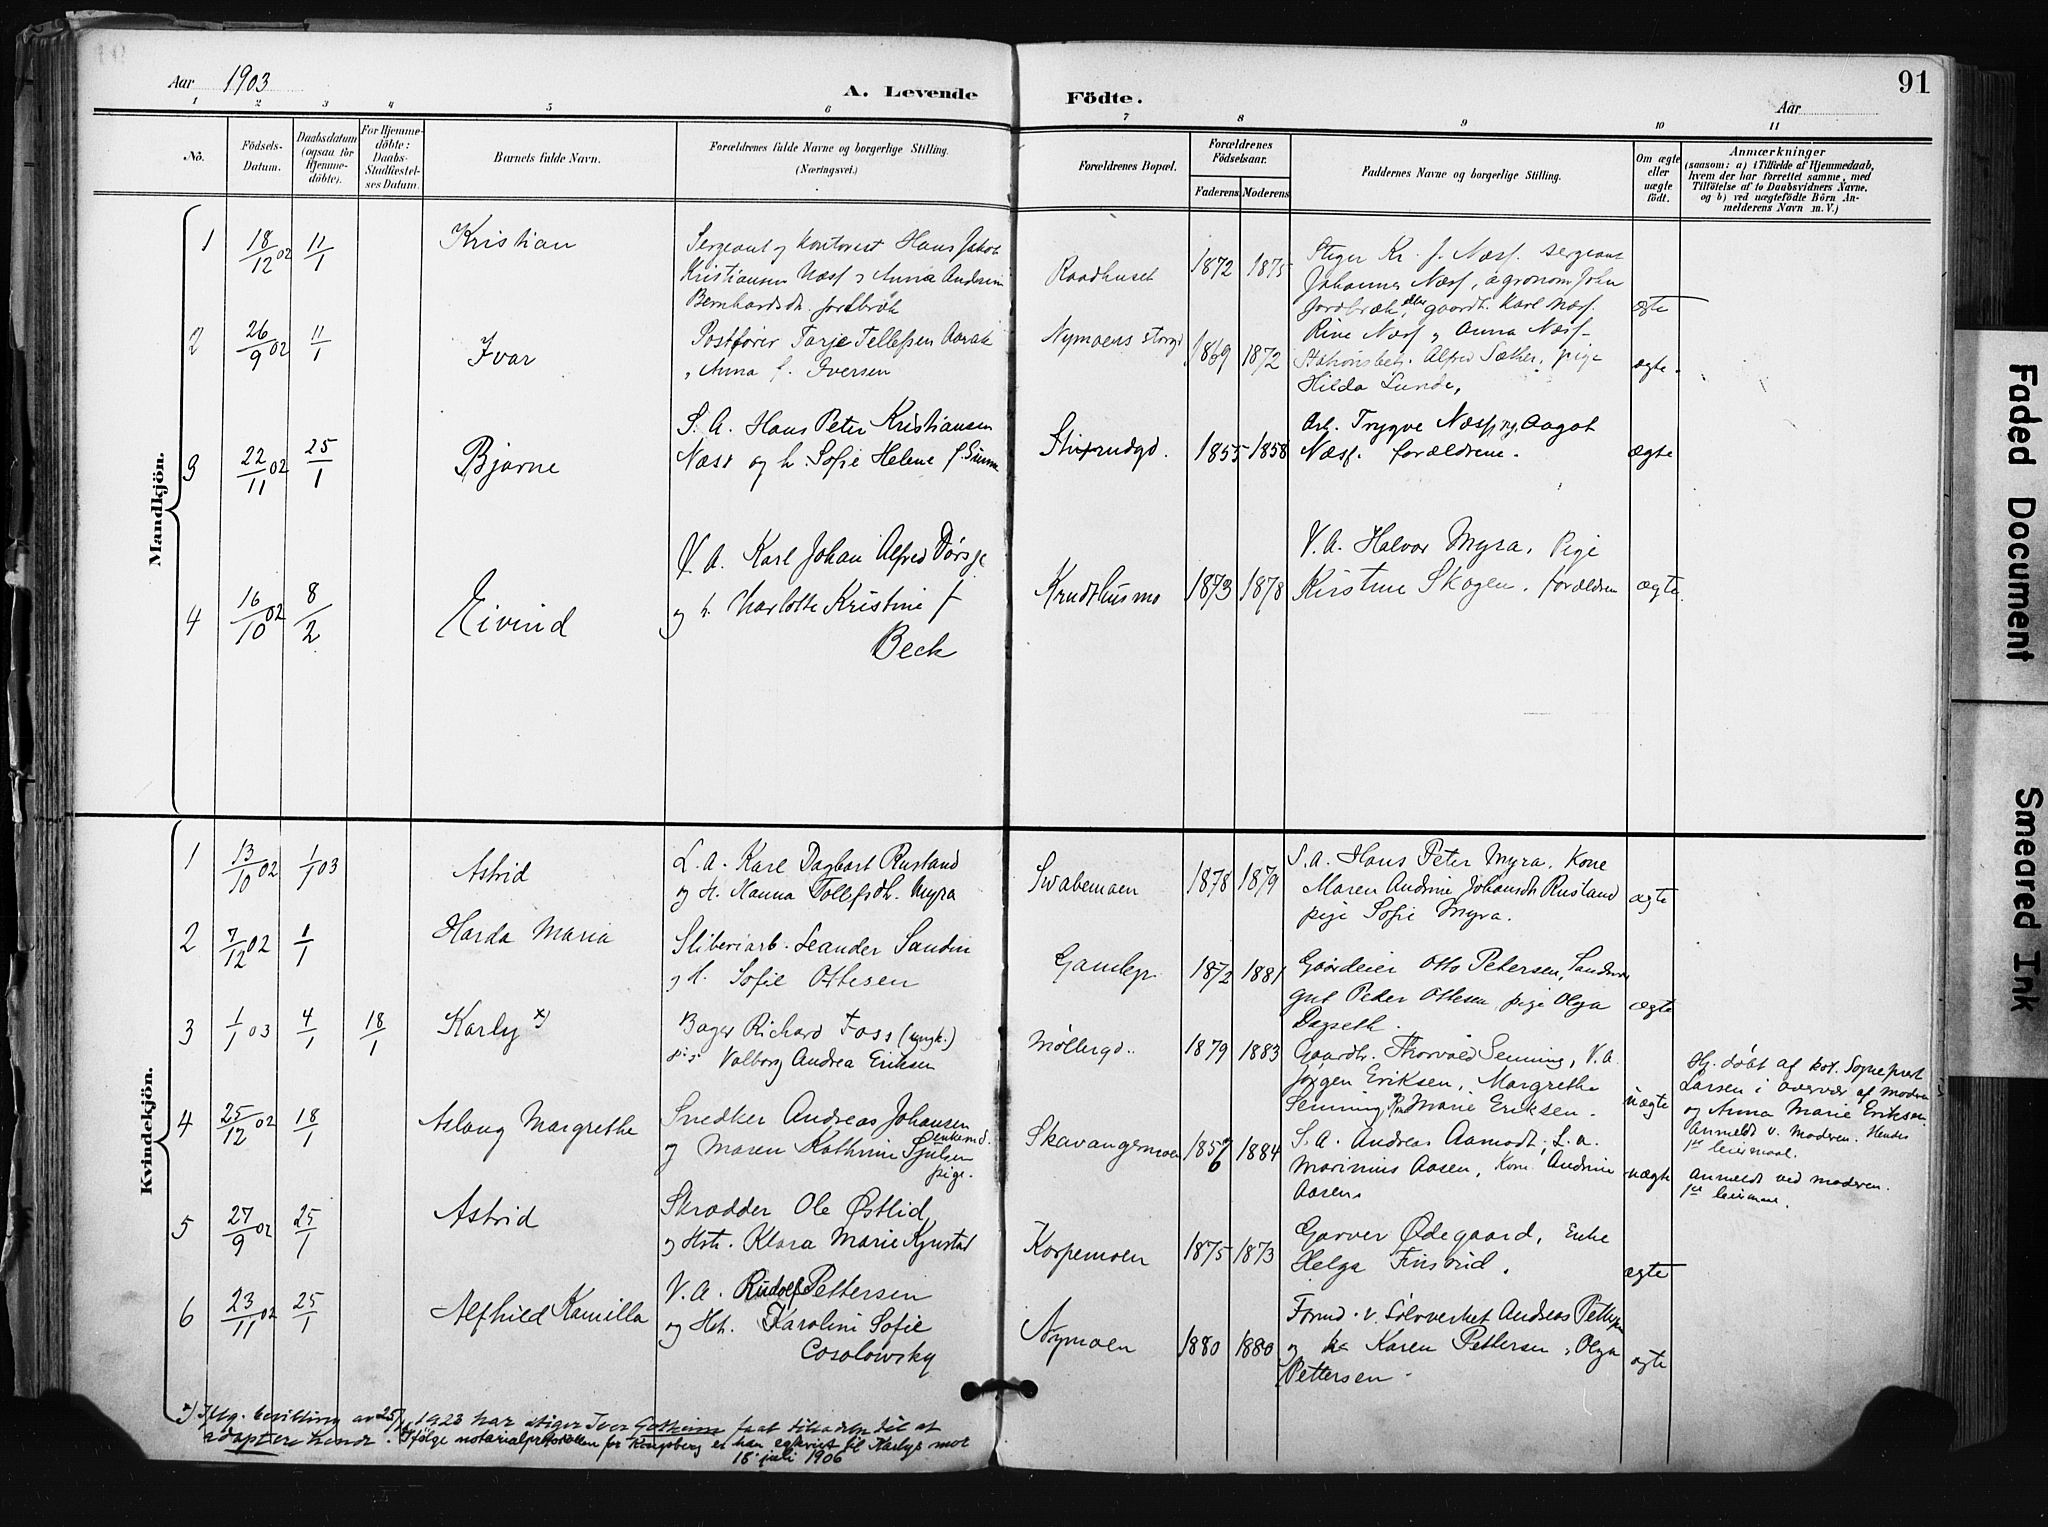 91
Aar 1903
A. Levende Födte.
Aar
1 2 3 4 5 6 7 8 9 10 11
Nö.
Födsels-Datum.
Daabsdatum (ogsaa for Hjemmedöbte).
For Hjemmedöbte: Daabs-Stadfæstelses Datum.
Barnets fulde Navn.
Forældrenes fulde Navne og borgerlige Stilling.
(Næringsvei.)
Forældrenes Bopæl.
Forældrenes Födselsaar.
Faderens Moderens
Faddernes Navne og borgerlige Stilling.
Om ægte eller uægte födt.
Anmærkninger
(saasom: a) i Tilfælde af Hjemmedaab,
hvem der har forrettet samme, med
Tilföielse af to Daabsvidners Navne,
og b) ved uægtefödte Börn An-
melderens Navn m. V.)
Mandkjön.
1 18/12 02 11/1 Kristian
Sergeant og kontorist Hans Jakob
Kristiansen Næss og Anna Andrine
Bernhardsdt. Jordbræk
Raadhuset 1872 1875
Stiger Kr. J. Næss. sergeant
Johannes Næss, agronom John
Jordbræk, gaardbr. Karl Næss.
Rine Næss og Anna Næss
ægte
2 26/9 02 11/1 Ivar
Postfører Tarje Tellefsen Aarak
" Anna f. Iversen
Nymoens 1869 1872
Stationsbetj. Alfred Sæther, pige
Hilda Lunde,
ægte.
3 22/11 02 25/1 Bjarne
S. A. Hans Peter Kristiansen
Næss og h. Sofie Helene f.
1855 1858
Arb. Trygve Næss og Aagot
Næss. forældrene.
ægte
4 16/10 02 8/2 Eivind
V. A. Karl Johan Alfred
og h. Charlotte Kristine f
Beck
1873 1878
V. A. Halvor Myra, Pige
Kirstine Skogen, forældren
ægte.
Kvindekjön.
1 13/10 02 1/1 03 Astrid
L. A. Karl Dagbart Rustand
og H. Nanna Tollefsdt. Myra
Svabemoen 1878 1879
S. A. Hans Peter Myra, Kone
Maren Andrine Johansdt Rustand
pige Sofie Myra.
ægte
2 7/12 02 1/1 Harda Maria
Sliberiarb. Leander Sandin
og h. Sofie Ottesen
1872 1881
Otto Petersen,
gut Peder Ottesen pige Olga
Dagseth.
ægte
3 1/1 03 4/1 18/1 Karly x)
Bager Richard Foss (ungk.)
pige Valborg Andrea Eriksen
Møllergd. 1879 1883
Gaardbr. Thorvald Senning, V. A.
Jørgen Eriksen, Margrethe
Senning, Marie Eriksen.
uægte
Hj. døbt af kst. Sogneprest
Larsen i overvær af moderen
og Anna Marie Eriksen.
Anmeldt v. Moderen. Hendes
1ste leiermaal.
4 25/12 02 18/1 Aslaug Margrethe
Snedker Andreas Johansen
enkemd.
og Maren Kathrine Sjulsen
pige.
Skavangermoen 1856 1884
S. A. Andreas Aamodt, L. A.
Marinius Aasen, Kone Andrine
Aasen.
uægte
Anmeldt ved moderen.
1ste leiermaal.
5 27/9 02 25/1 Astrid
Skrædder Ole Østlid
og Hstr. Klara Marie Kjustad
Korpemoen 1875 1873
Garver Ødegaard, Enke
Helga Finsrud.
ægte
6 23/11 02 25/1 Alfhild Kamilla
V. A. Rudolf Pettersen
og Hst. Karolini Sofie
Cosolowsky
Nymoen 1880 1880
Formd. v. Sølvverket Andreas Pettersen
og Karen Pettersen, Olga
Pettersen.
ægte
x) Iflg. bevilling av 25/ 1923 har stiger Iver Gotheim faat tilladelse til at
adoptere hende. Ifølge notarialprotokollen for Kongsberg er han egteviet til Karlys mor
18 juli 1906
Faded Document
Smeared Ink